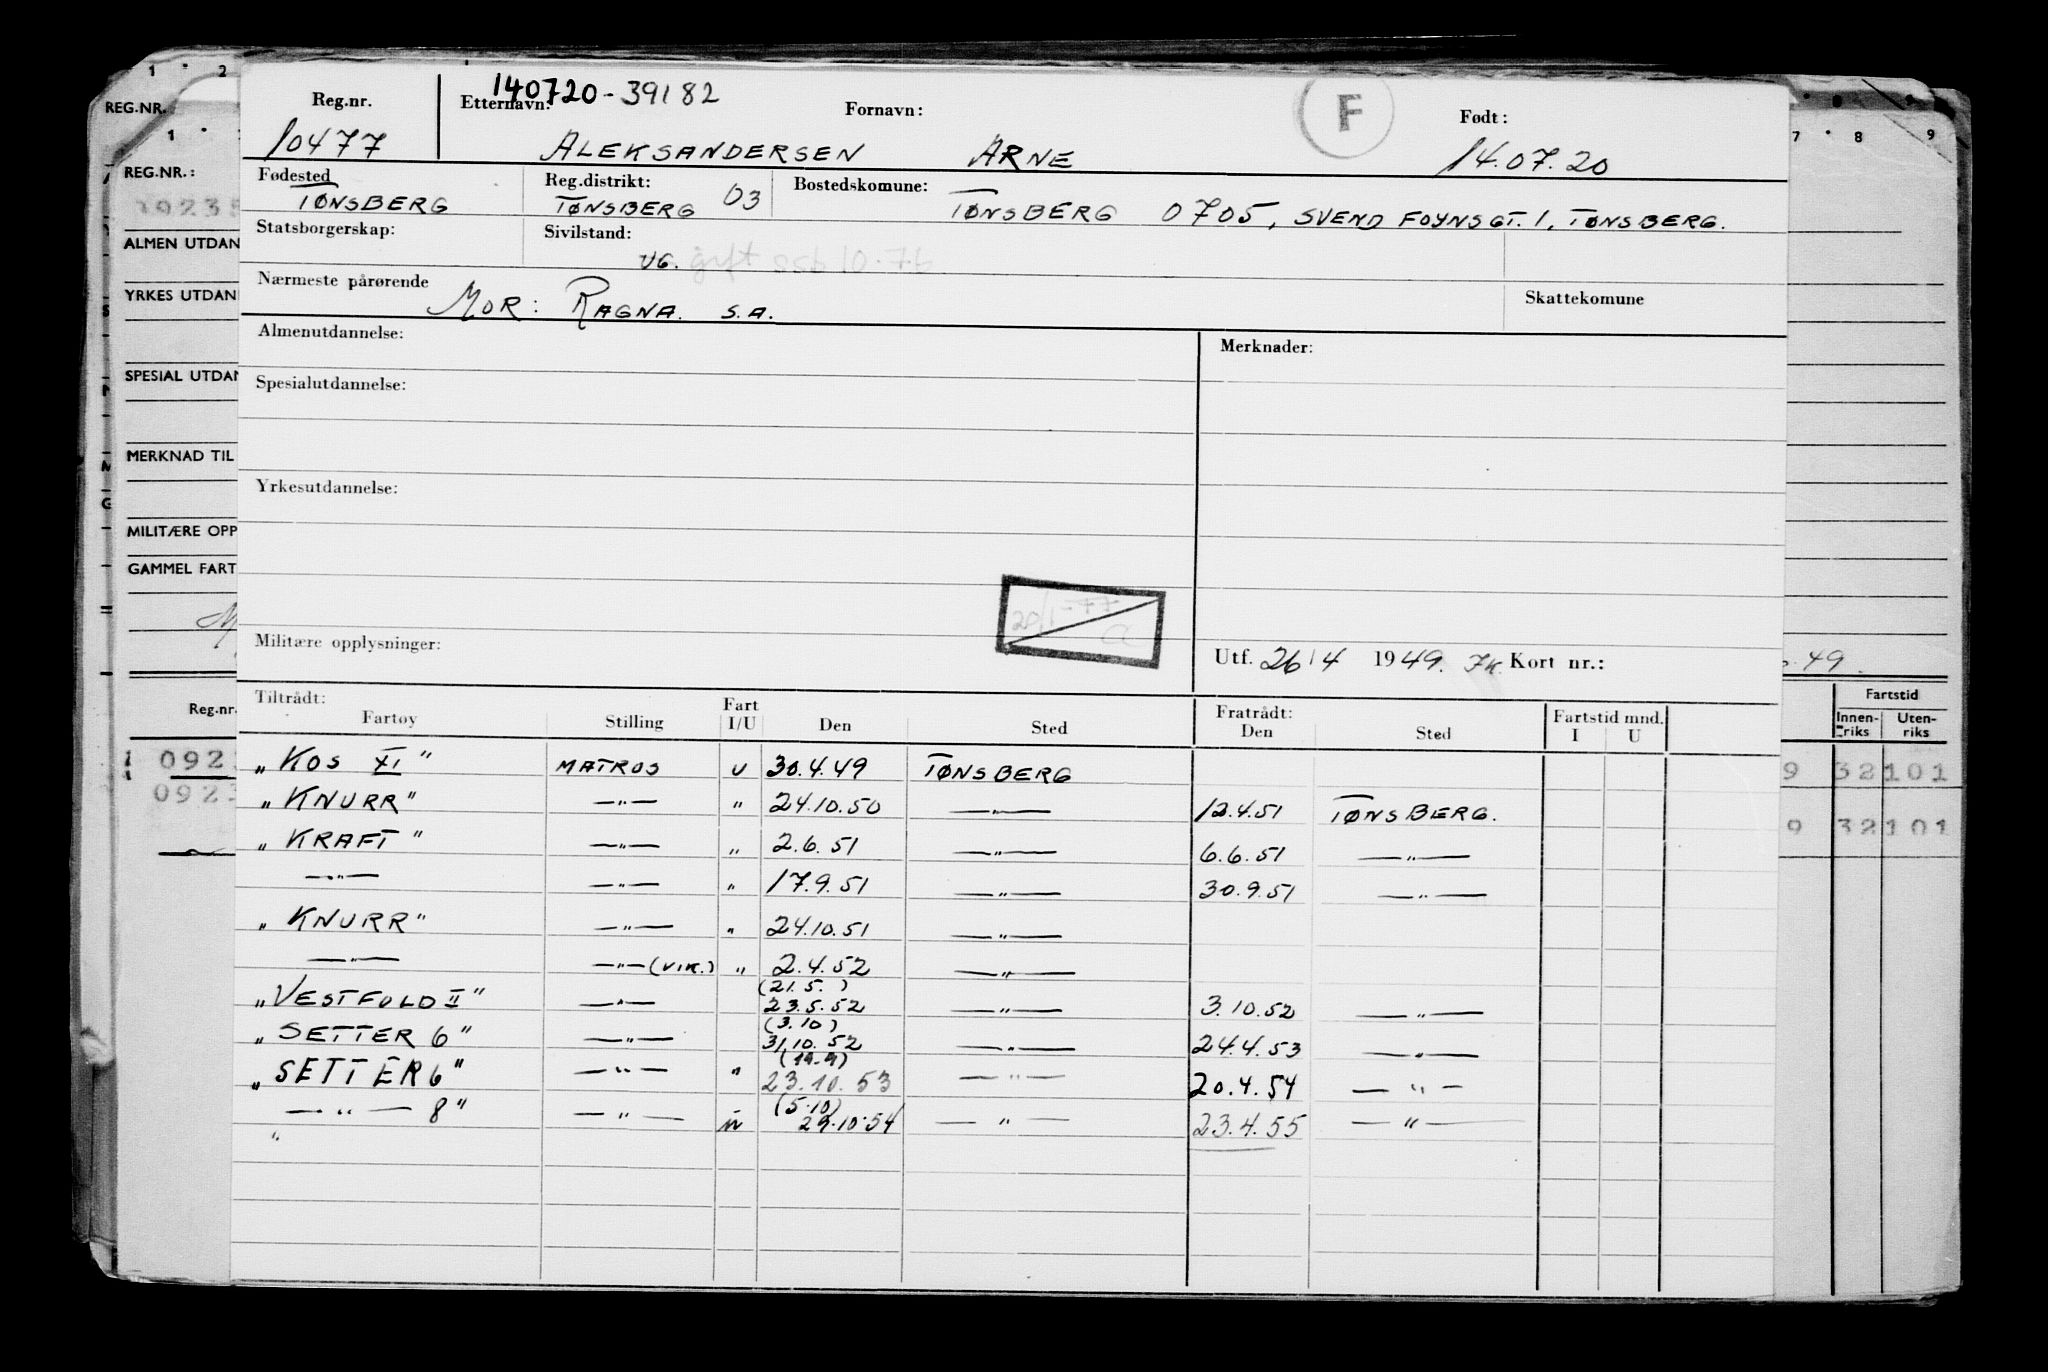 140720-39182
Reg.nr. Etternavn: Fornavn: F Født:
10477 ALEKSANDERSEN ARNE 14.07.20
Fødested Reg.distrikt: 03 Bostedskomune:
TØNSBERG TØNSBERG TØNSBERG 0705, SVEND FOYNSGT. 1. TØNSBERG.
Statsborgerskap: Sivilstand:
UG. gift ssb 10.76
Nærmeste pårørende Skattekomune
MOR: RAGNA. S.A.
Almenutdannelse: Merknader:
Spesialutdannelse:
Yrkesutdannelse:
20/1-77
Militære opplysninger: Utf. 26/4 1949. Kort nr.:
Tiltrådt: Fratrådt: Fartstid mnd.
Fartøy Stilling Fart I/U Den Sted Den Sted I U
"KOS XI" MATROS U 30.4.49 TØNSBERG
"KNURR" —"— " 24.10.50 —"— 12.4.51 TØNSBERG.
"KRAFT" —"— " 2.6.51 —"— 6.6.51 —"—
—"— —"— " 17.9.51 —"— 30.9.51 —"—
"KNURR" —"— " 24.10.51 —"—
—"— —"— (VIK.) " 2.4.52 —"—
(21.5. )
"VESTFOLD II" —"— 23.5.52 —"— 3.10.52 —"—
(3.10)
"SETTER 6" —"— 31.10.52 —"— 24.4.53 —"—
(19.9)
"SETTER 6" —"— " 23.10.53 —"— 20.4.54 —"—
(5.10)
" —"— 8" —"— " 29.10.54 —"— 23.4.55 —"—
1 2 8 9
REG.NR.
1 7 8 9
REG.NR.:
09235
ALMEN UTDAN
YRKES UTDAN
SPESIAL UTDAN
MERKNAD TIL
MILITÆRE OPP
GAMMEL FART
49.
Reg.nr. Fartstid
Innenriks Utenriks
092 9 32 101
092 9 32 101